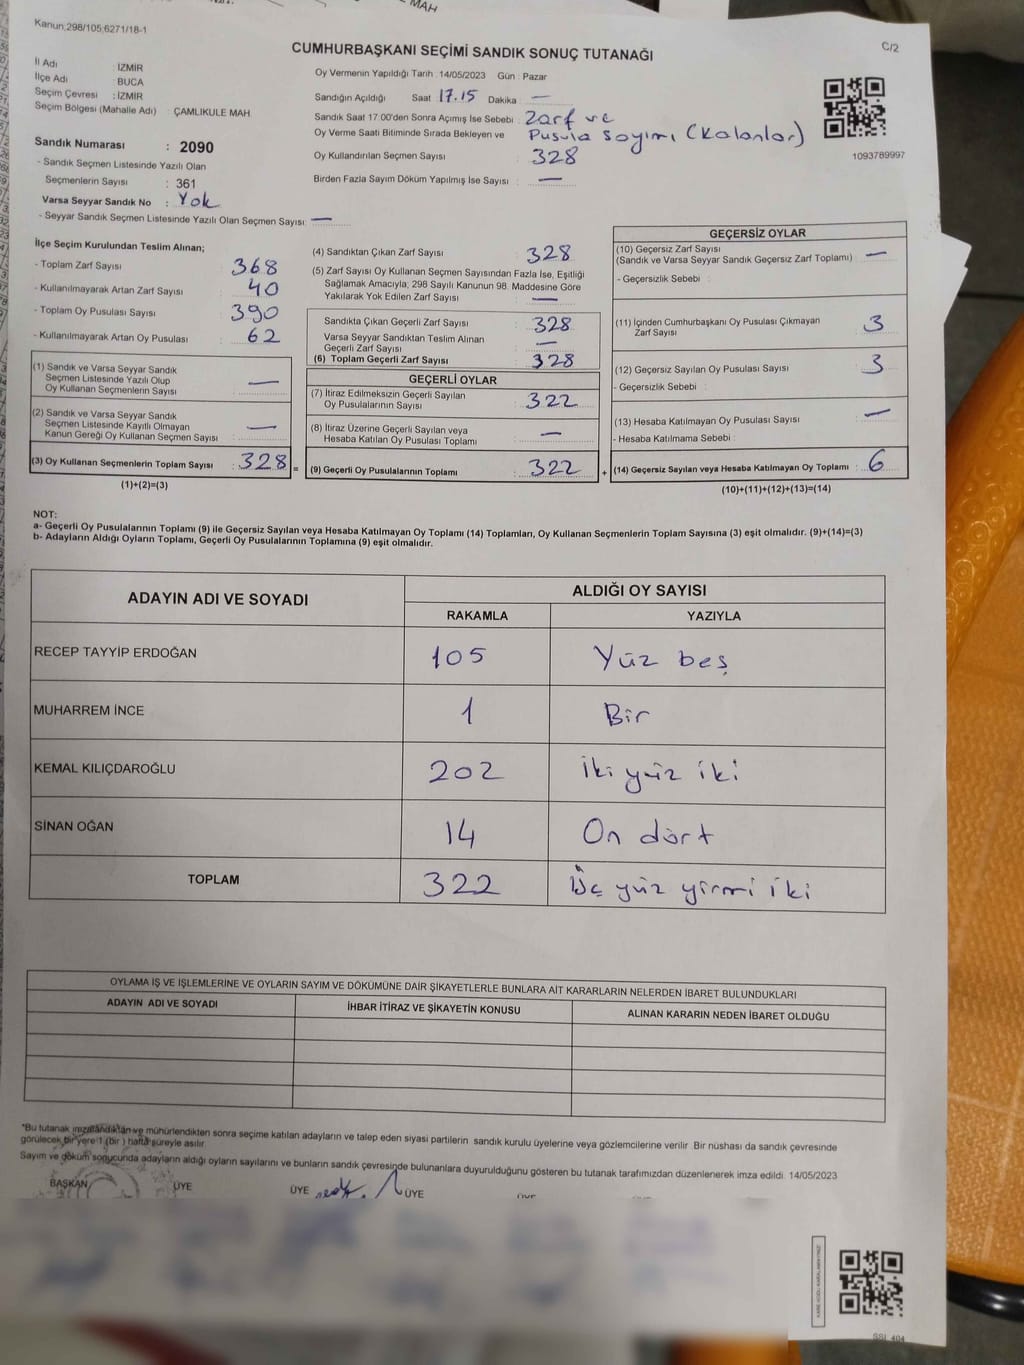 MAH
Kanun:298/105;6271/18-1
C/2
CUMHURBAŞKANI SEÇİMİ SANDIK SONUÇ TUTANAĞI
İl Adı : İZMİR
İlçe Adı : BUCA
Seçim Çevresi : İZMİR
Seçim Bölgesi (Mahalle Adı) : ÇAMLIKULE MAH
Sandık Numarası : 2090
- Sandık Seçmen Listesinde Yazılı Olan
Seçmenlerin Sayısı : 361
Varsa Seyyar Sandık No : Yok
- Seyyar Sandık Seçmen Listesinde Yazılı Olan Seçmen Sayısı: —
Oy Vermenin Yapıldığı Tarih : 14/05/2023 Gün : Pazar
Sandığın Açıldığı Saat 17.15 Dakika : —
Sandık Saat 17.00'den Sonra Açımış İse Sebebi : Zarf ve
Oy Verme Saati Bitiminde Sırada Bekleyen ve Pusula Sayımı (Kalanlar)
Oy Kullandırılan Seçmen Sayısı : 328
Birden Fazla Sayım Döküm Yapılmış İse Sayısı : —
1093789997
İlçe Seçim Kurulundan Teslim Alınan;
- Toplam Zarf Sayısı : 368
- Kullanılmayarak Artan Zarf Sayısı : 40
- Toplam Oy Pusulası Sayısı : 390
- Kullanılmayarak Artan Oy Pusulası : 62
(1) Sandık ve Varsa Seyyar Sandık
Seçmen Listesinde Yazılı Olup
Oy Kullanan Seçmenlerin Sayısı : —
(2) Sandık ve Varsa Seyyar Sandık
Seçmen Listesinde Kayıtlı Olmayan
Kanun Gereği Oy Kullanan Seçmen Sayısı : —
(3) Oy Kullanan Seçmenlerin Toplam Sayısı : 328 =
(1)+(2)=(3)
(4) Sandıktan Çıkan Zarf Sayısı : 328
(5) Zarf Sayısı Oy Kullanan Seçmen Sayısından Fazla İse, Eşitliği
Sağlamak Amacıyla, 298 Sayılı Kanunun 98. Maddesine Göre
Yakılarak Yok Edilen Zarf Sayısı : —
Sandıkta Çıkan Geçerli Zarf Sayısı : 328
Varsa Seyyar Sandıktan Teslim Alınan
Geçerli Zarf Sayısı : —
(6) Toplam Geçerli Zarf Sayısı : 328
GEÇERLİ OYLAR
(7) İtiraz Edilmeksizin Geçerli Sayılan
Oy Pusulalarının Sayısı : 322
(8) İtiraz Üzerine Geçerli Sayılan veya
Hesaba Katılan Oy Pusulası Toplamı : —
(9) Geçerli Oy Pusulalarının Toplamı : 322 +
GEÇERSİZ OYLAR
(10) Geçersiz Zarf Sayısı
(Sandık ve Varsa Seyyar Sandık Geçersiz Zarf Toplamı) : —
- Geçersizlik Sebebi :
(11) İçinden Cumhurbaşkanı Oy Pusulası Çıkmayan
Zarf Sayısı : 3
(12) Geçersiz Sayılan Oy Pusulası Sayısı : 3
- Geçersizlik Sebebi :
(13) Hesaba Katılmayan Oy Pusulası Sayısı : —
- Hesaba Katılmama Sebebi :
(14) Geçersiz Sayılan veya Hesaba Katılmayan Oy Toplamı : 6
(10)+(11)+(12)+(13)=(14)
NOT:
a- Geçerli Oy Pusulalarının Toplamı (9) ile Geçersiz Sayılan veya Hesaba Katılmayan Oy Toplamı (14) Toplamları, Oy Kullanan Seçmenlerin Toplam Sayısına (3) eşit olmalıdır. (9)+(14)=(3)
b- Adayların Aldığı Oyların Toplamı, Geçerli Oy Pusulalarının Toplamına (9) eşit olmalıdır.
ADAYIN ADI VE SOYADI
ALDIĞI OY SAYISI
RAKAMLA YAZIYLA
RECEP TAYYİP ERDOĞAN 105 Yüz beş
MUHARREM İNCE 1 Bir
KEMAL KILIÇDAROĞLU 202 İki yüz iki
SİNAN OĞAN 14 On dört
TOPLAM 322 Üç yüz yirmi iki
OYLAMA İŞ VE İŞLEMLERİNE VE OYLARIN SAYIM VE DÖKÜMÜNE DAİR ŞİKAYETLERLE BUNLARA AİT KARARLARIN NELERDEN İBARET BULUNDUKLARI
ADAYIN ADI VE SOYADI İHBAR İTİRAZ VE ŞİKAYETİN KONUSU ALINAN KARARIN NEDEN İBARET OLDUĞU
*Bu tutanak imzalandıktan ve mühürlendikten sonra seçime katılan adayların ve talep eden siyasi partilerin sandık kurulu üyelerine veya gözlemcilerine verilir. Bir nüshası da sandık çevresinde
görülecek bir yere 1 (bir) hafta süreyle asılır.
Sayım ve döküm sonucunda adayların aldığı oyların sayılarını ve bunların sandık çevresinde bulunanlara duyurulduğunu gösteren bu tutanak tarafımızdan düzenlenerek imza edildi. 14/05/2023
BAŞKAN ÜYE ÜYE ÜYE